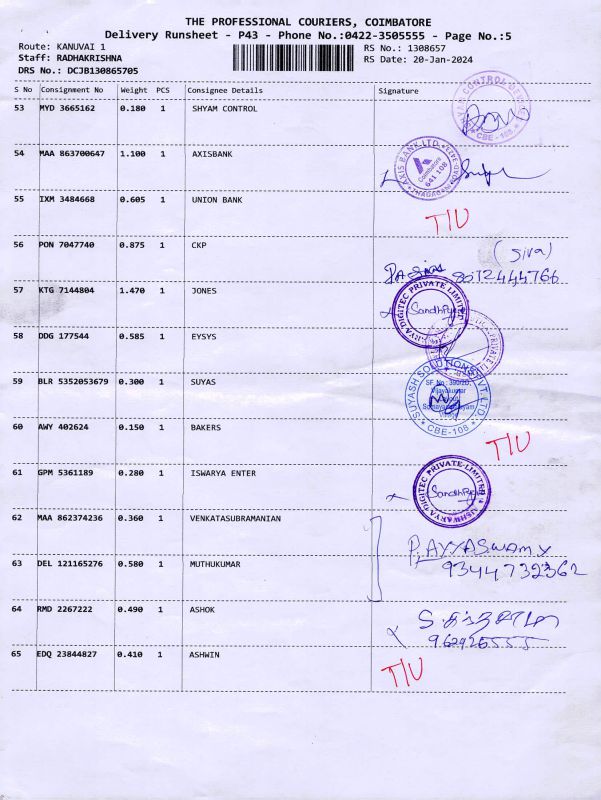 THE PROFESSIONAL COURIERS, COIMBATORE
Delivery Runsheet - P43 - Phone No.:0422-3505555 - Page No.:5
Route: KANUVAI 1 RS No.: 1308657
Staff: RADHAKRISHNA RS Date: 20-Jan-2024
DRS No.: DCJB130865705
S No Consignment No Weight PCS Consignee Details Signature
53 MYD 3665162 0.180 1 SHYAM CONTROL
CONTROL CBE-108
54 MAA 863700647 1.100 1 AXISBANK
AXIS BANK LTD. Coimbatore 641 108
55 IXM 3484668 0.605 1 UNION BANK T/U
56 PON 7047740 0.875 1 CKP (Siva)
57 KTG 7144804 1.470 1 JONES
DIGITEC PRIVATE LIMITED Sandhiya
58 DDG 177544 0.585 1 EYSYS
59 BLR 5352053679 0.300 1 SUYAS
SUYASH SOLUTIONS PVT. LTD. SF. No : 390/20, Vijayakumar CBE-108
60 AWY 402624 0.150 1 BAKERS T/U
61 GPM 5361189 0.280 1 ISWARYA ENTER
AISHWARYA DIGITEC PRIVATE LIMITED Sandhiya
62 MAA 862374236 0.360 1 VENKATASUBRAMANIAN
P. AYYASWAMY
63 DEL 121165276 0.580 1 MUTHUKUMAR 9344732362
64 RMD 2267222 0.490 1 ASHOK
65 EDQ 23844827 0.410 1 ASHWIN T/U